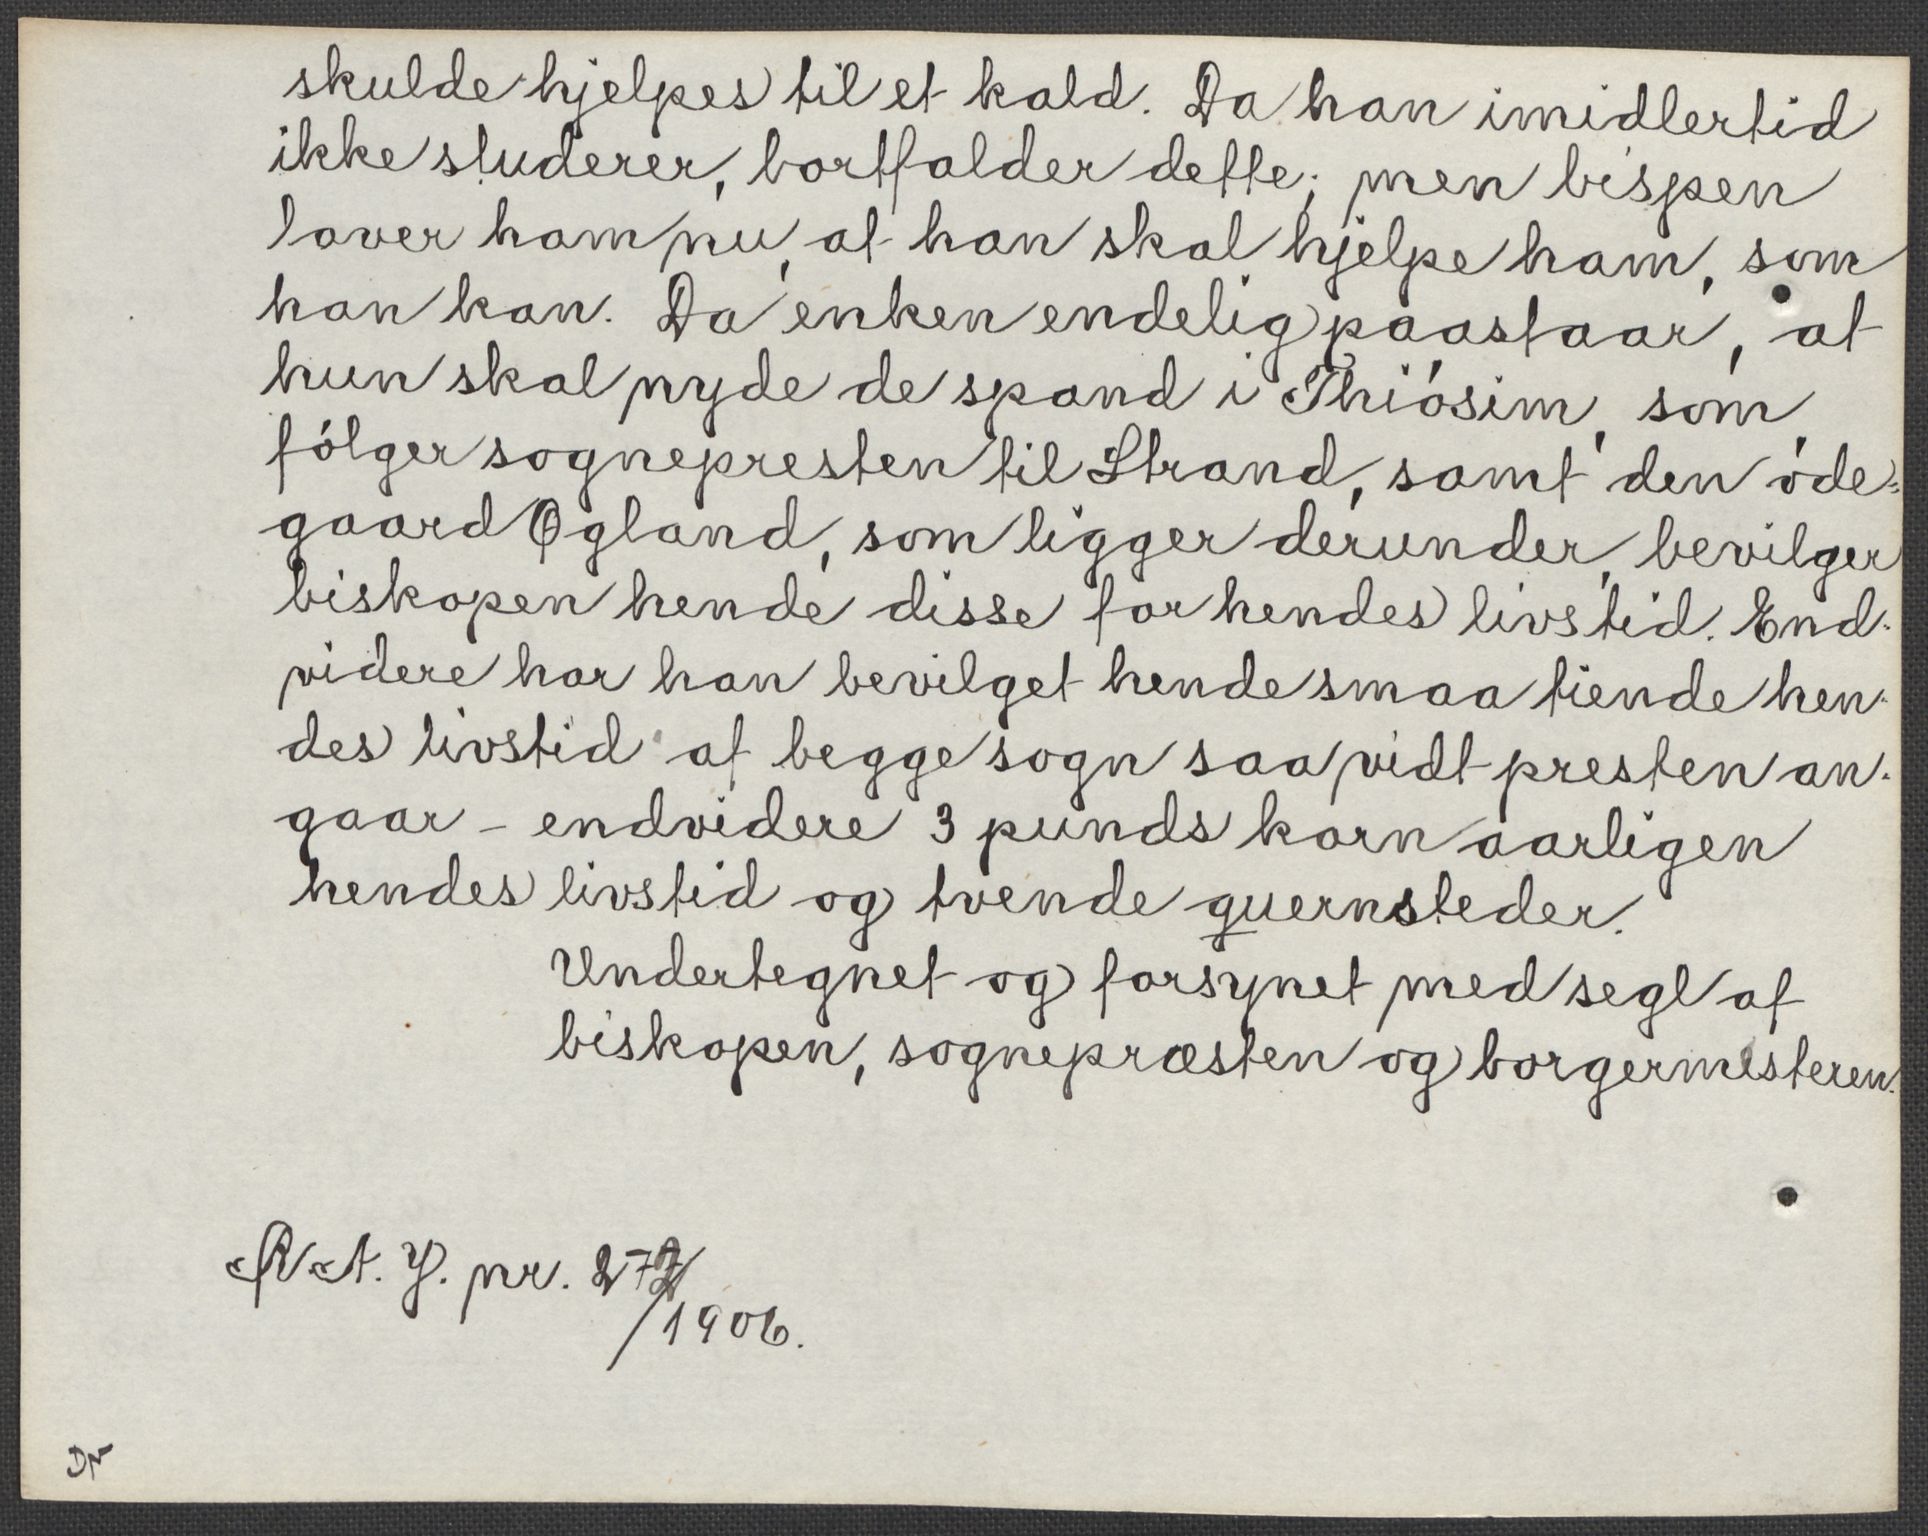 skulde hjelpes til et kald. Da han imidlertid
ikke studerer, bortfalder dette; men bispen
lover ham nu, at han skal hjelpe ham, som
han kan. Da enken endelig paastaar, at
hun skal nyde de spand i Thiósim, som
fólger sognepresten til Strand, samt den óde=
gaard Ogland, som ligger derunder, bevilger
biskopen hende disse for hendes livstid. End-
videre har han bevilget hende smaa tiende hen-
des livstid af begge sogn saa vidt presten an-
gaar - endvidere 3 punds korn aarligen
hendes livstid og tvende quernsteder.
Undertegnet og forsynet med segl af
biskopen, sognepræsten og borgermesteren.
R. A. Y. nr. 272
/1906.
DN